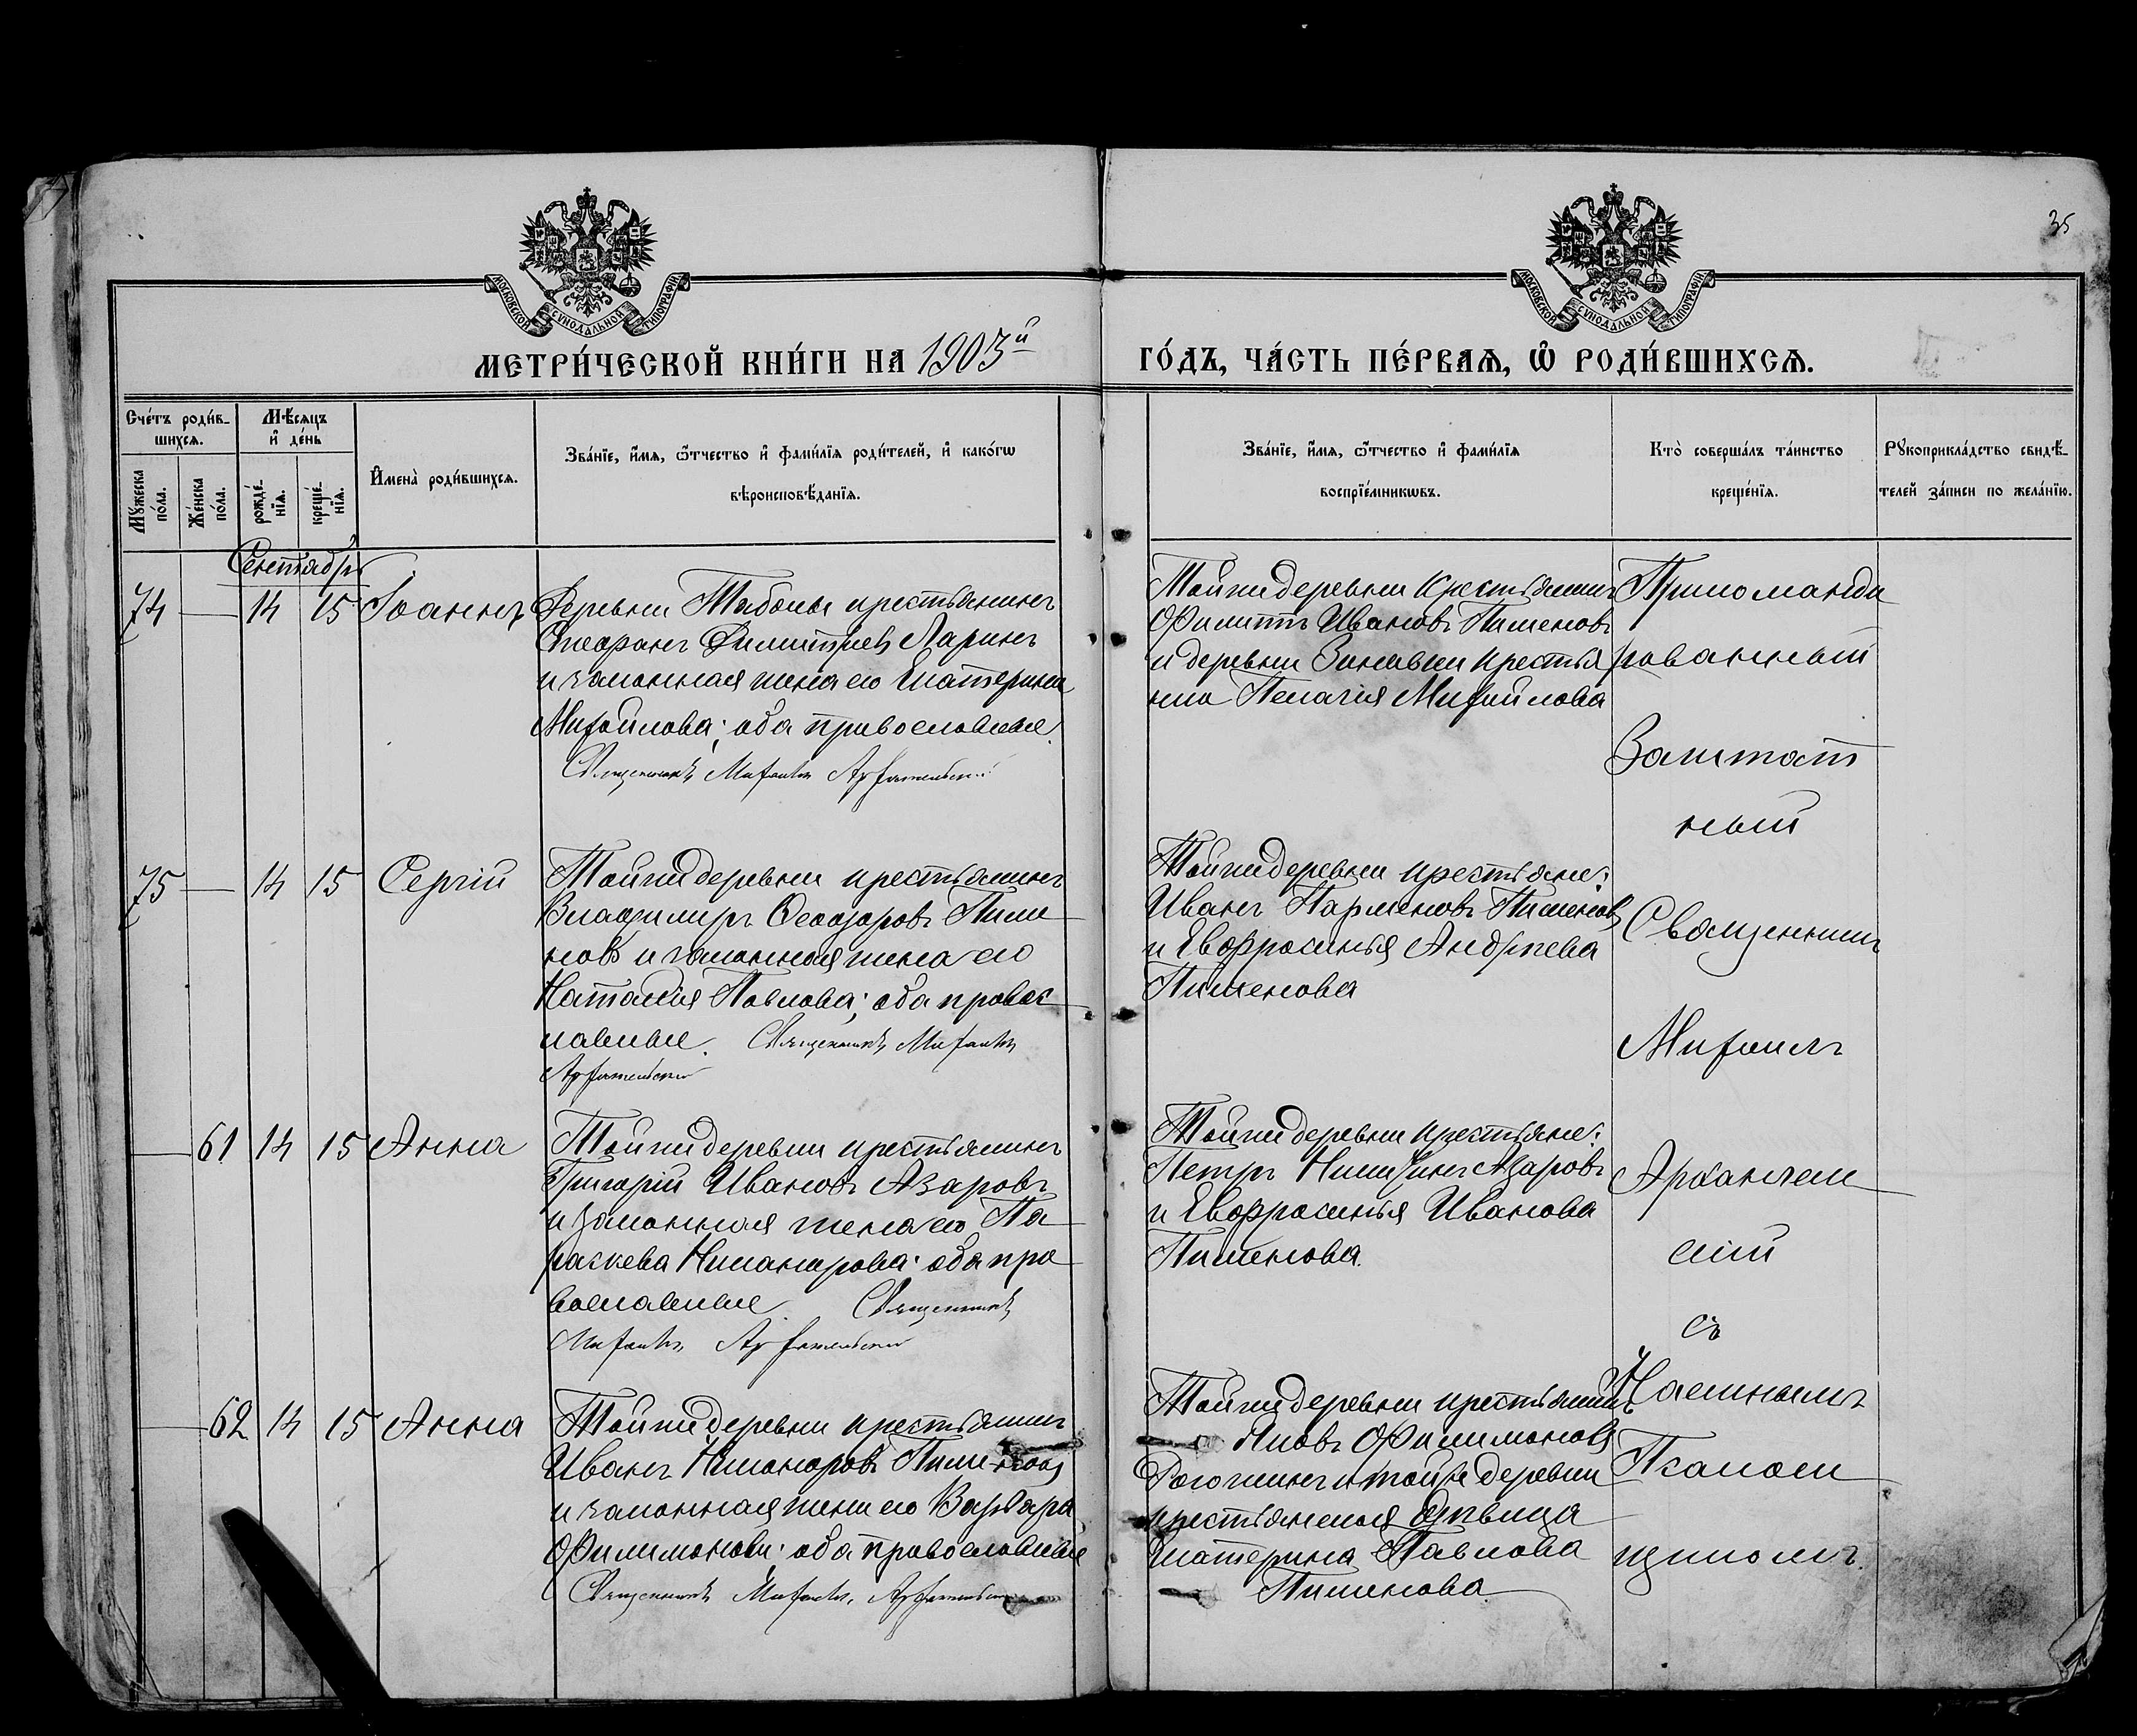 35
МОСКОВСКОЙ СѴНОДАЛЬНОЙ ТИПОГРАФІИ
МОСКОВСКОЙ СѴНОДАЛЬНОЙ ТИПОГРАФІИ
МЕТРИ́ЧЕСКОЙ КНИ́ГИ НА 1903й
ГО́ДЪ, ЧА́СТЬ ПЕ́РВАѦ, Ѡ҆ РОДИ́ВШИХСѦ.
Сче́тъ роди́в-
шихсѧ.
Мѣ́сѧцъ
и҆ де́нь
Мꙋ́жеска
по́ла.
Же́нска
по́ла.
рожде́-
нїѧ.
креще́-
нїѧ.
И҆мена̀ роди́вшихсѧ.
Зва́нїе, и҆́мѧ, ѻ҆́тчество и҆ фами́лїѧ роди́телей, и҆ како́гѡ
вѣроисповѣ́данїѧ.
Зва́нїе, и҆́мѧ, ѻ҆́тчество и҆ фами́лїѧ
воспрїе́мникѡвъ.
Кто̀ соверша́лъ та́инство
креще́нїѧ.
Рꙋкоприкла́дство свидѣ́-
телей за́писи по жела́нїю.
Сентябрь
74 — 14 15 Іоаннъ
Деревни крестьянинъ
Стефанъ Димитріевъ Ларинъ
и законная жена его Екатерина
Михайлова; оба православные.
Священникъ Михаилъ Архангельскій
Тойже деревни крестьянинъ
Филиппъ Ивановъ Пименовъ
и деревни крестья
нка Пелагія Михайлова
75 — 14 15 Сергій
Тойже деревни крестьянинъ
Владимиръ Ѳеодоровъ Пиме
новъ и законная жена его
Наталія Павлова; оба правос
лавные. Священникъ Михаилъ
Архангельскій
Тойже деревни крестьяне:
Иванъ Парменовъ Пименовъ
и Евфросинья Андреева
Пименова
— 61 14 15 Анна
Тойже деревни крестьянинъ
Григорій Ивановъ Азаровъ
и законная жена его Па
раскева Никанорова; оба пра
вославные. Священникъ
Михаилъ Архангельскій
Тойже деревни крестьяне:
Петръ Азаровъ
и Евфросинья Иванова
Пименова.
— 62 14 15 Анна
Тойже деревни крестьянинъ
Иванъ Никаноровъ Пименовъ
и законная жена его Варвара
Филимонова; оба православные
Священникъ Михаилъ Архангельскій
Тойже деревни крестьянинъ
Яковъ Филимоновъ
Рогожинъ и тойже деревни
крестьянская дѣвица
Екатерина Павлова
Пименова
Прикоманди
рованный
Заштат
ный
Священникъ
Михаилъ
Архангель
скій
съ
Псалом
щикомъ.